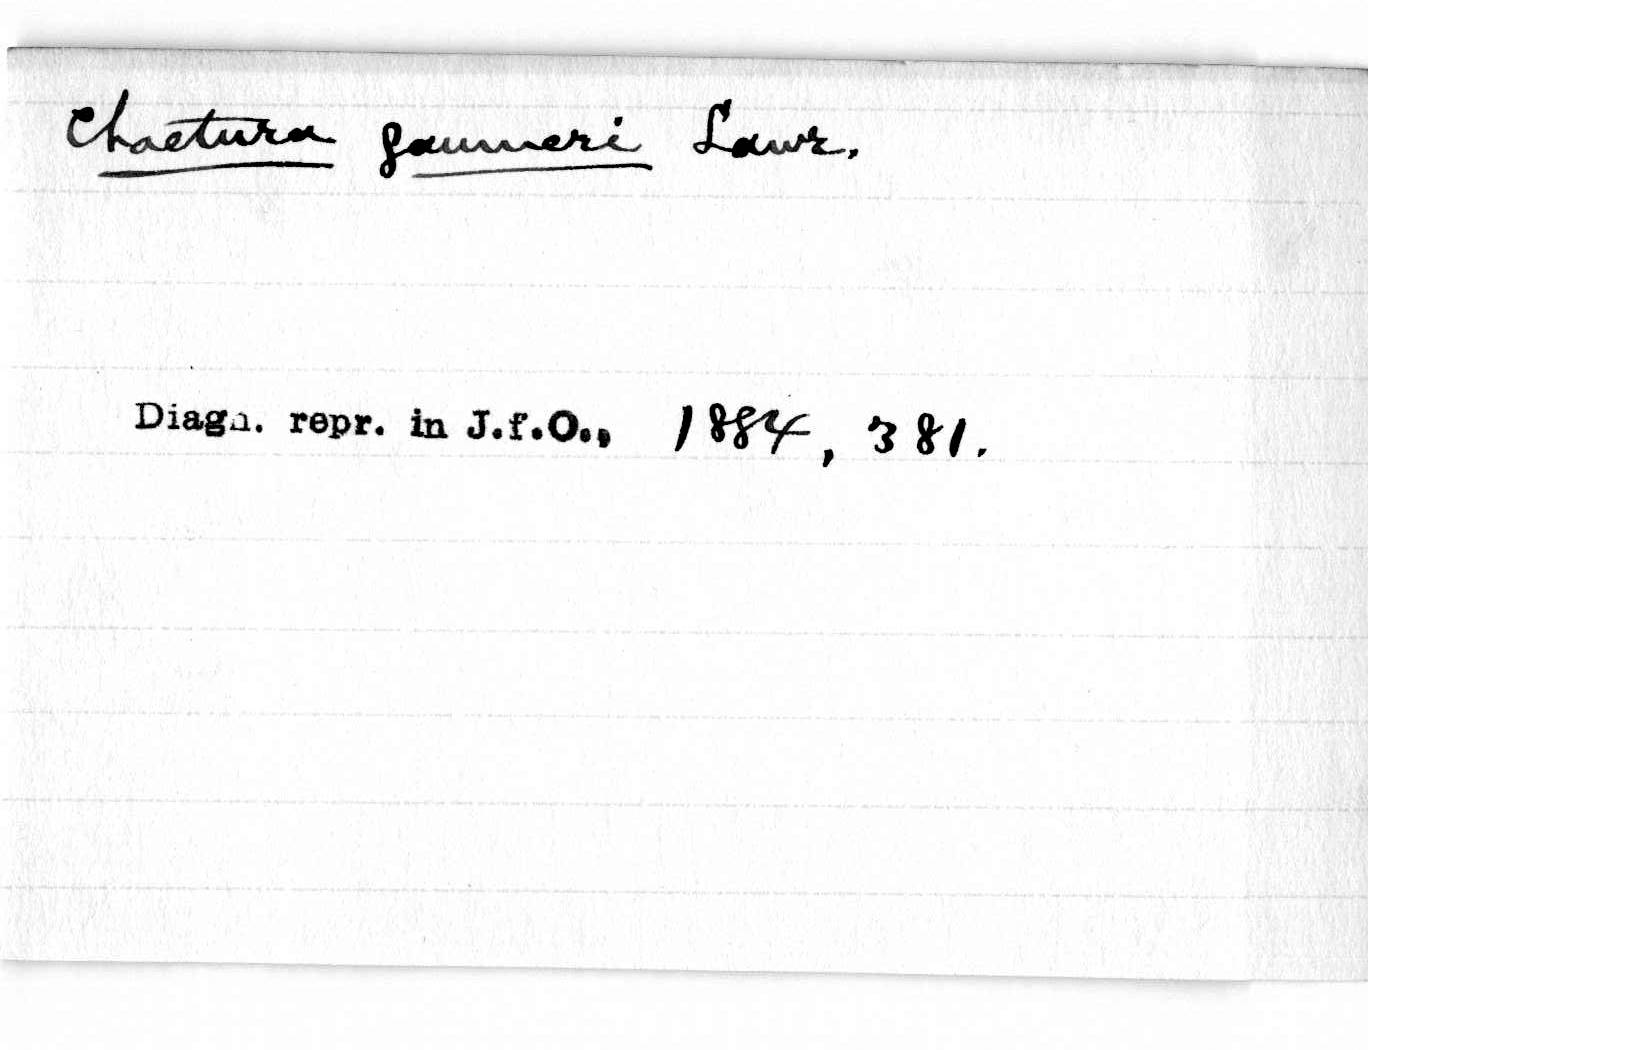 Chaetura gaumeri Lawr.
Diagn. repr. in J.f.O., 1884, 381.